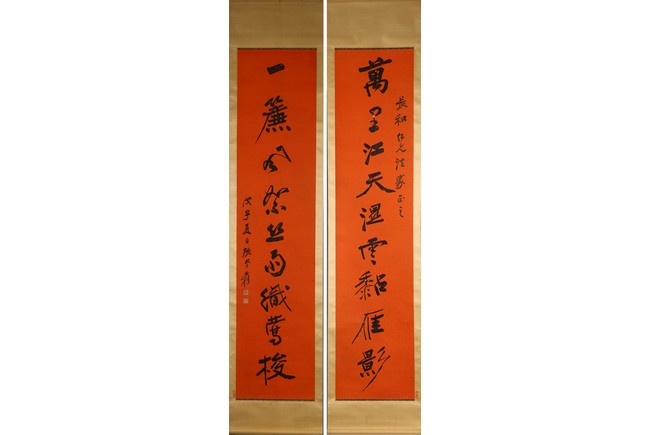 萬里江天湿雲黏雁影
仁兄法家正之
一簾風絮丝雨織鶯梭
夏日張爰